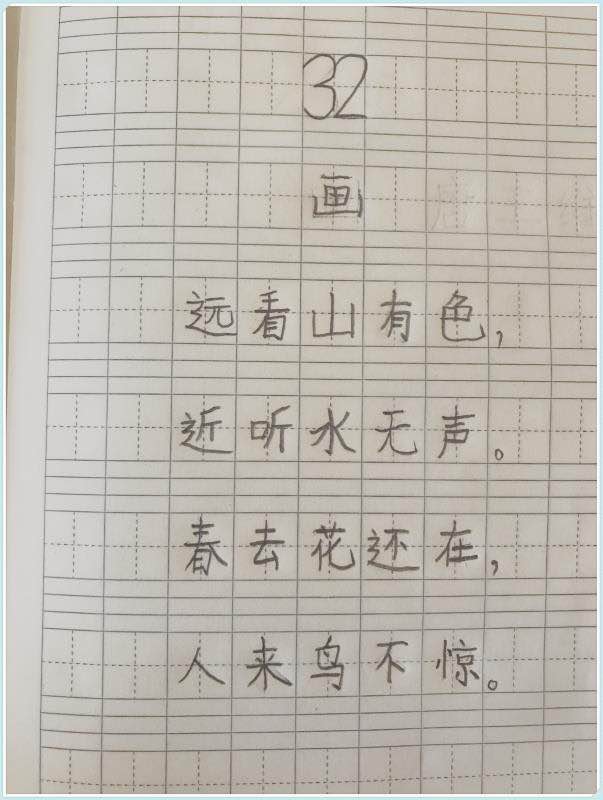 32
画
远看山有色,
近听水无声。
春去花还在,
人来鸟不惊。